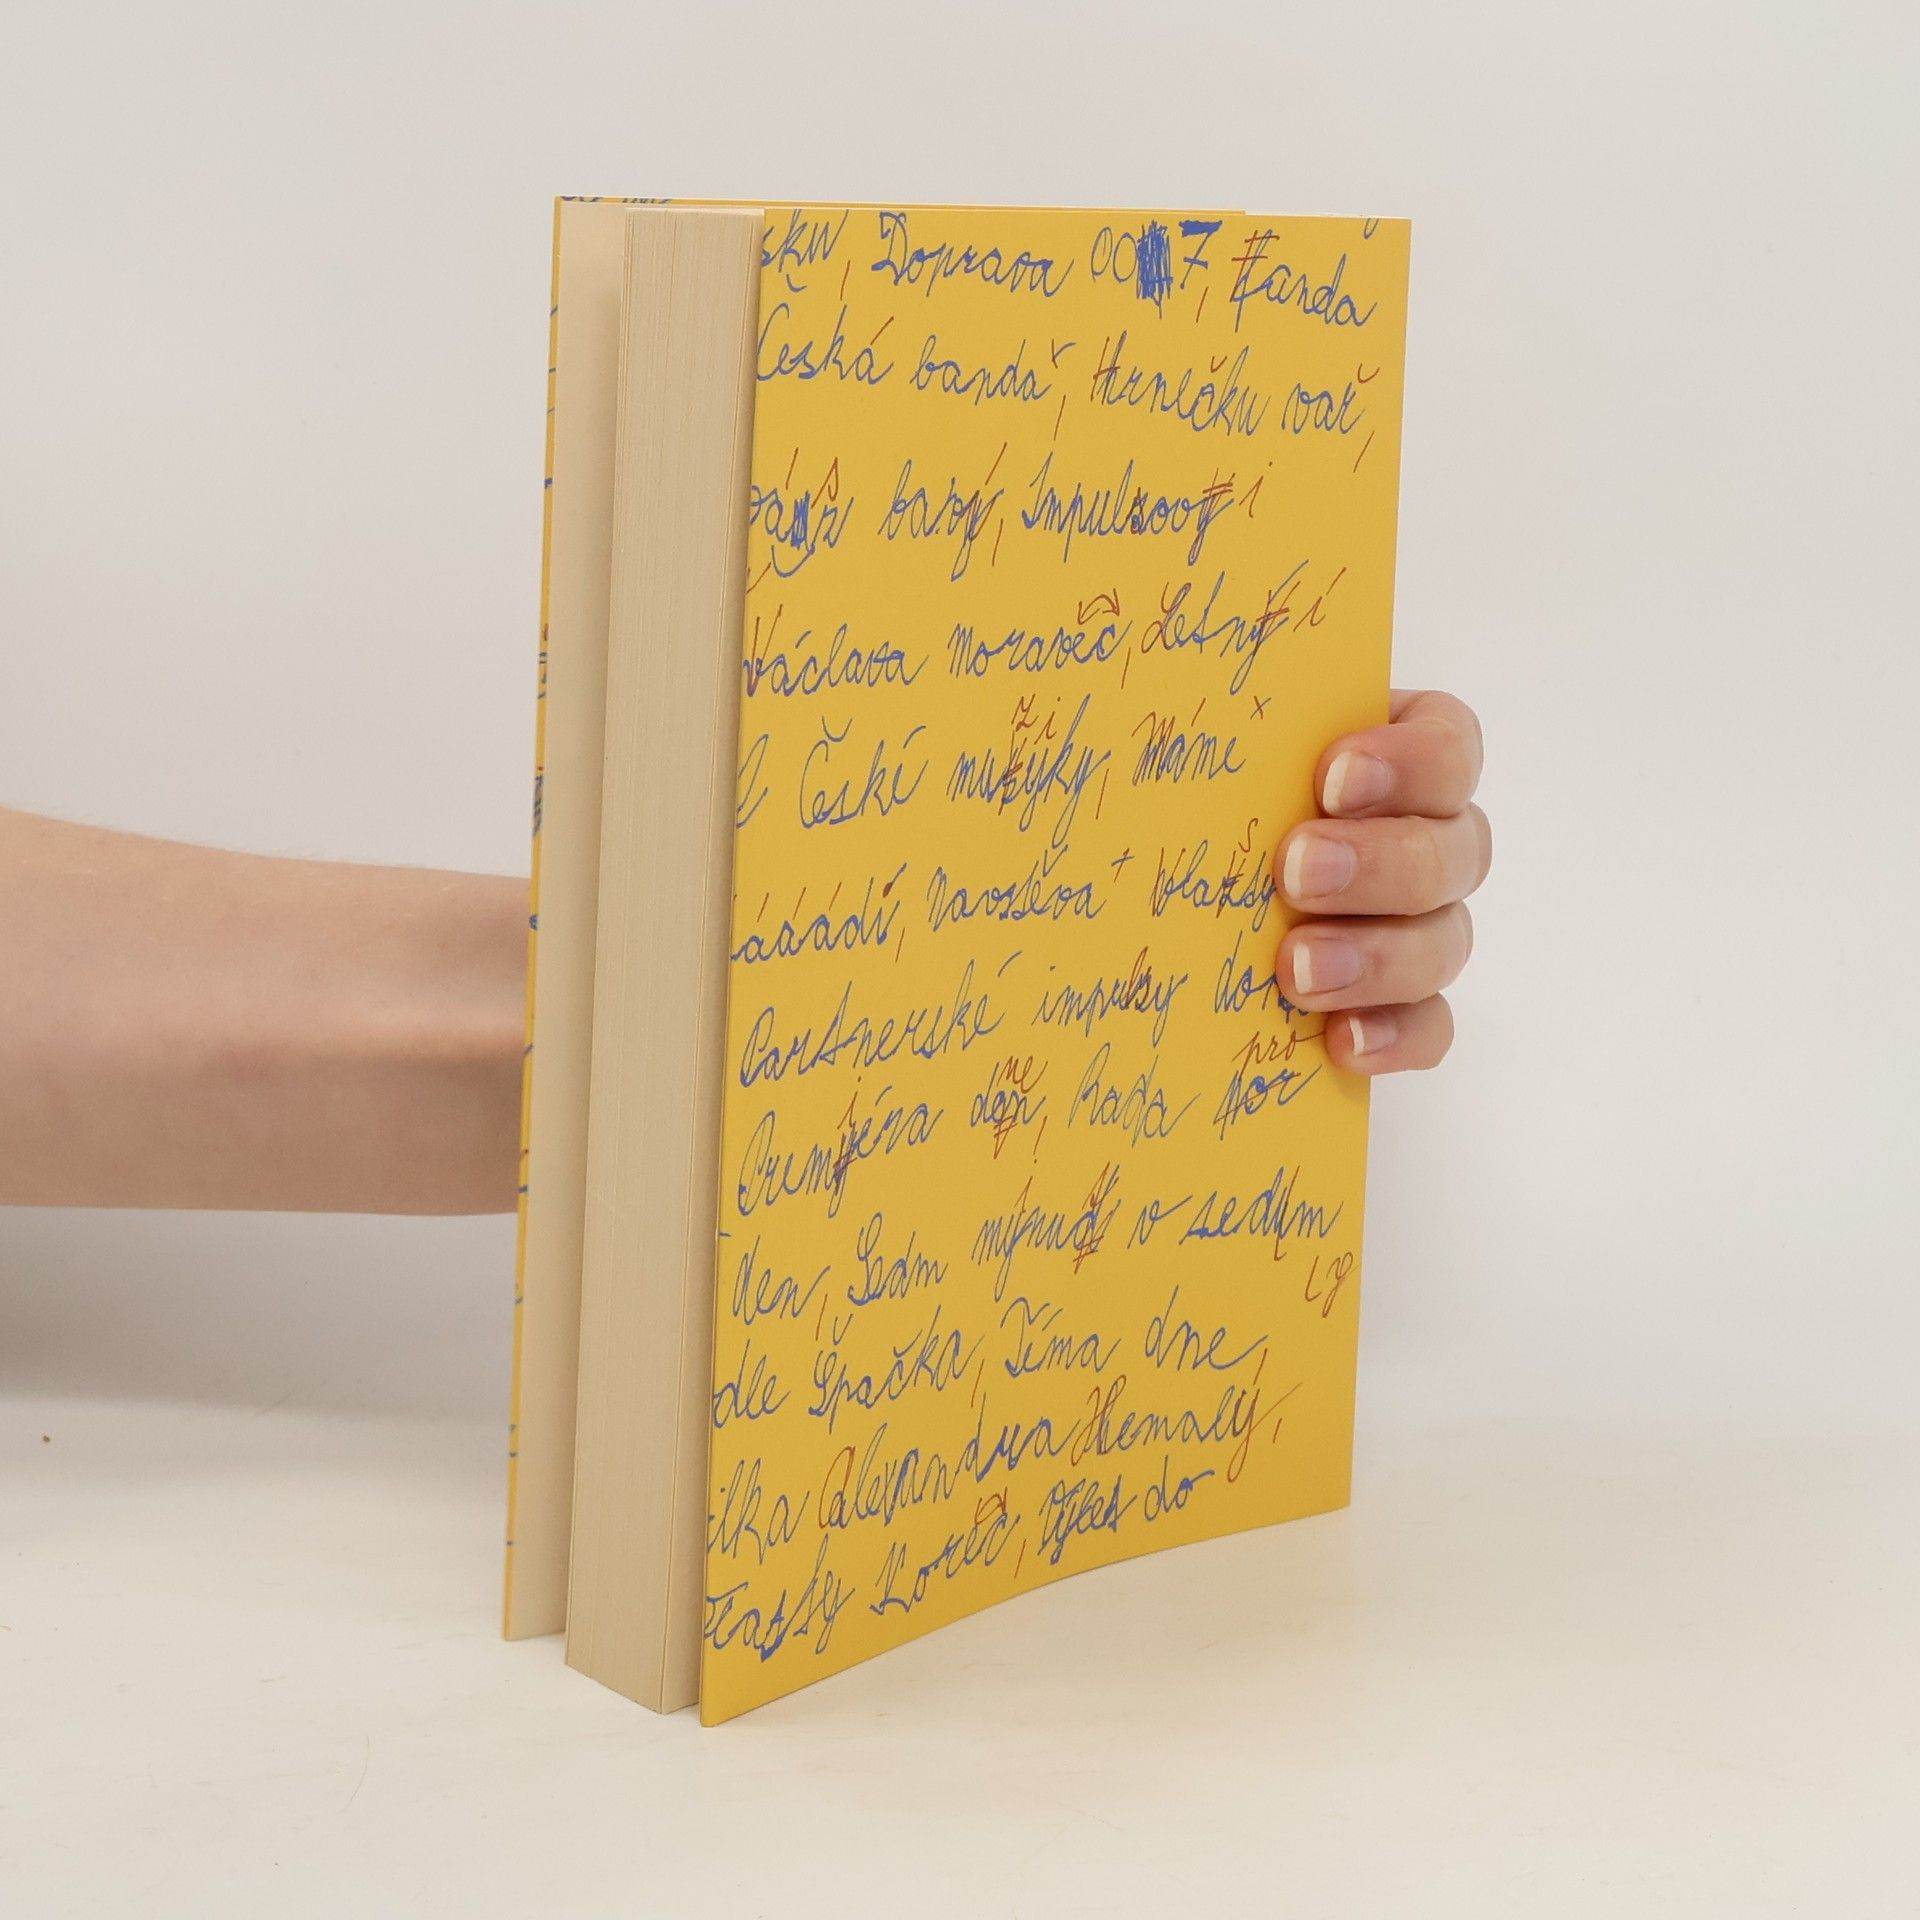 sku, Doprava 007, Fanda
Česká banda, Hrnečku vař,
baví, Impulsoví
Václava Moravce, Letní
České muziky, Máme
ááádí, Navstěva Vlasty
Partnerské impulsy
Premjéra dne, Rada pro
den, Sedm mynut v sedum
dle Špačka, Téma dne,
ilka Alexandra Hemalý,
Vlasty Korec, Výlet do